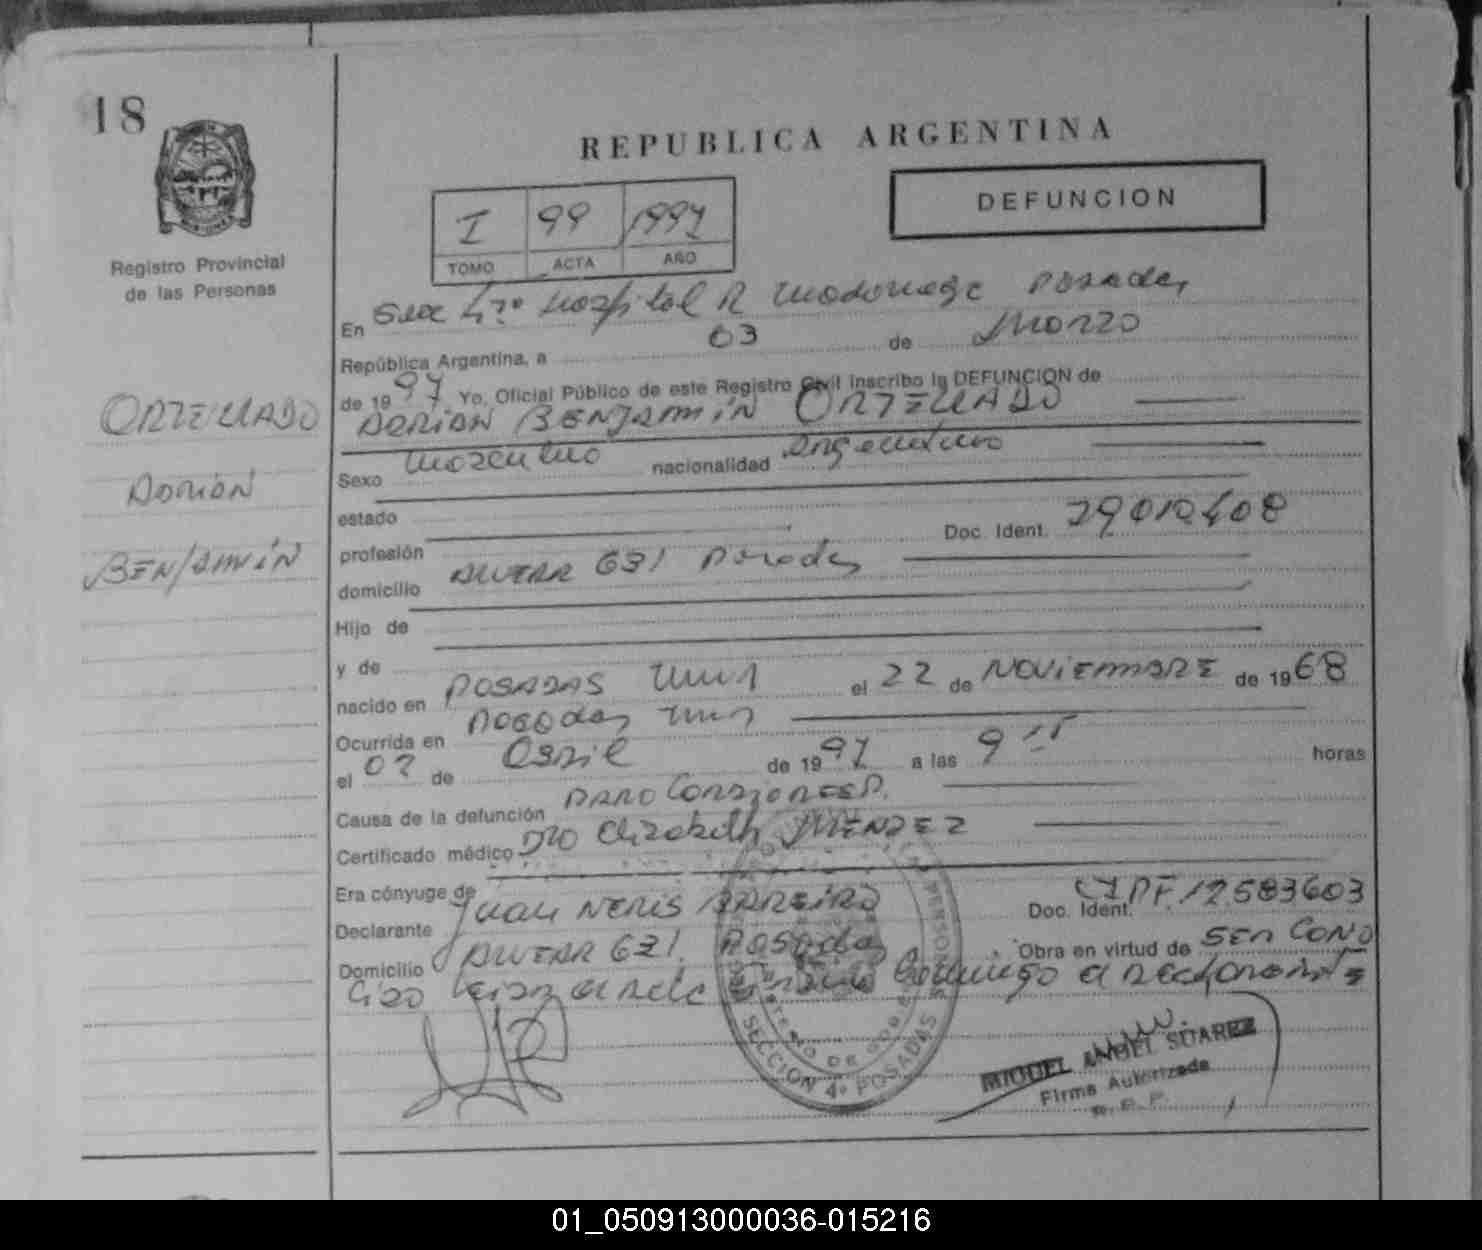 18
REPUBLICA ARGENTINA
DEFUNCION
I 99 1997
TOMO ACTA AÑO
Registro Provincial
de las Personas
En Secc 4ta Hospital R Madariaga Posadas
República Argentina, a 03 de Marzo
de 1997 Yo, Oficial Público de este Registro Civil inscribo la DEFUNCION de
ORTELLADO
DORIAN
BENJAMIN
DORIAN BENJAMIN ORTELLADO
Sexo masculino nacionalidad Argentino
estado
profesión Doc. Ident.
domicilio ALVEAR 631 Posadas
Hijo de
y de
nacido en POSADAS Mnes el 22 de NOVIEMBRE de 1968
Ocurrida en Posadas Mnes
el 02 de de 1997 a las 9 horas
Causa de la defunción PARO
Certificado médico Dra Elizabeth MENDEZ
Era cónyuge de
Declarante Juan NERIS BAREIRO Doc. Ident. 12583603
Domicilio ALVEAR 631 Posadas Obra en virtud de
el declarante
SECCION 4ª POSADAS
MIGUEL ANGEL SUAREZ
Firma Autorizada
R. P. P.
01_050913000036-015216